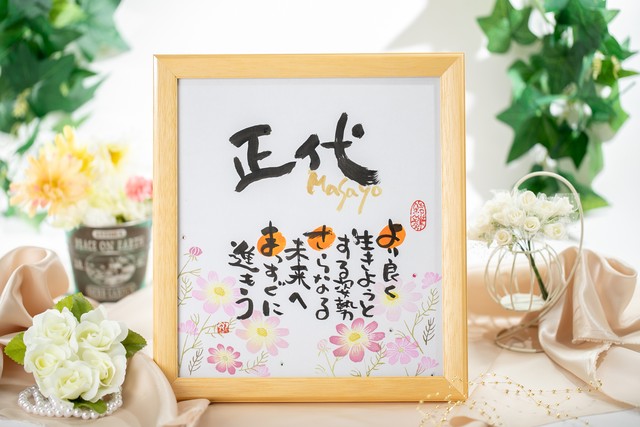 正代
Masayo
より良く
生きようと
する姿勢
さらなる
未来へ
まっすぐに
進もう
PEACE ON EARTH